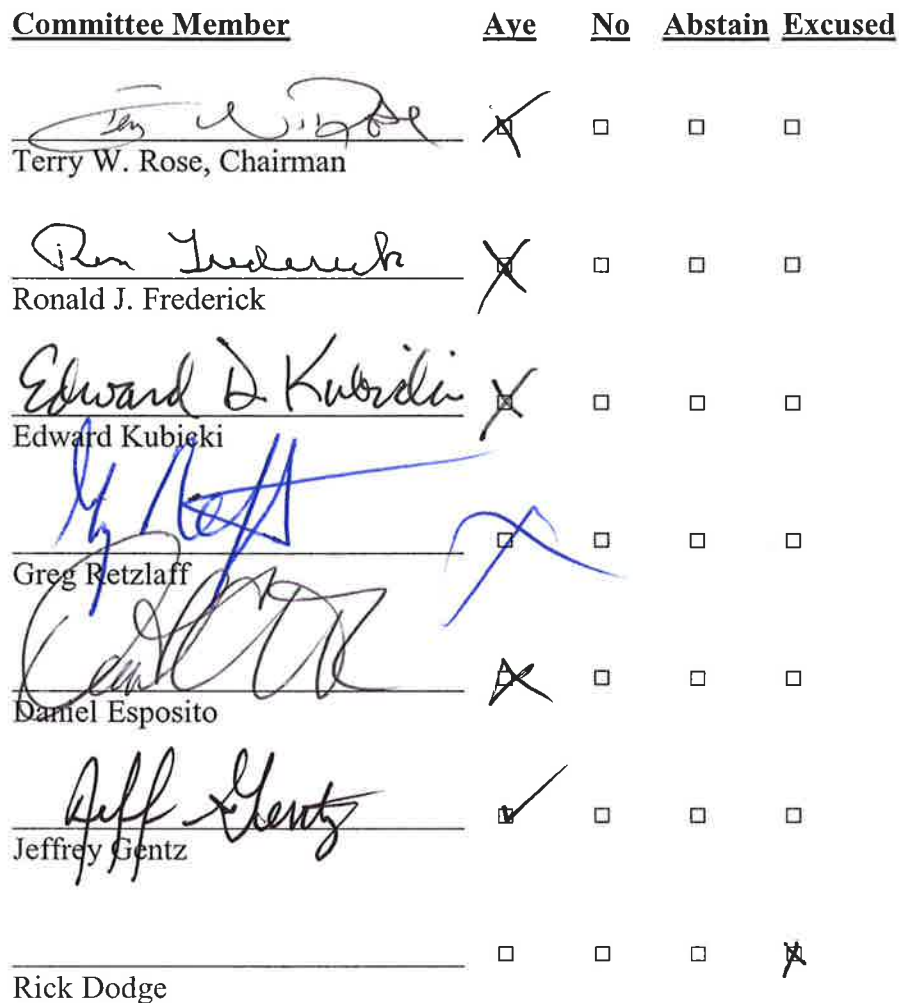 Committee Member Aye No Abstain Excused
Terry W. Rose
Terry W. Rose, Chairman
Ron Frederick
Ronald J. Frederick
Edward D. Kubicki
Edward Kubicki
Greg Retzlaff
Daniel Esposito
Jeff Gentz
Jeffrey Gentz
Rick Dodge